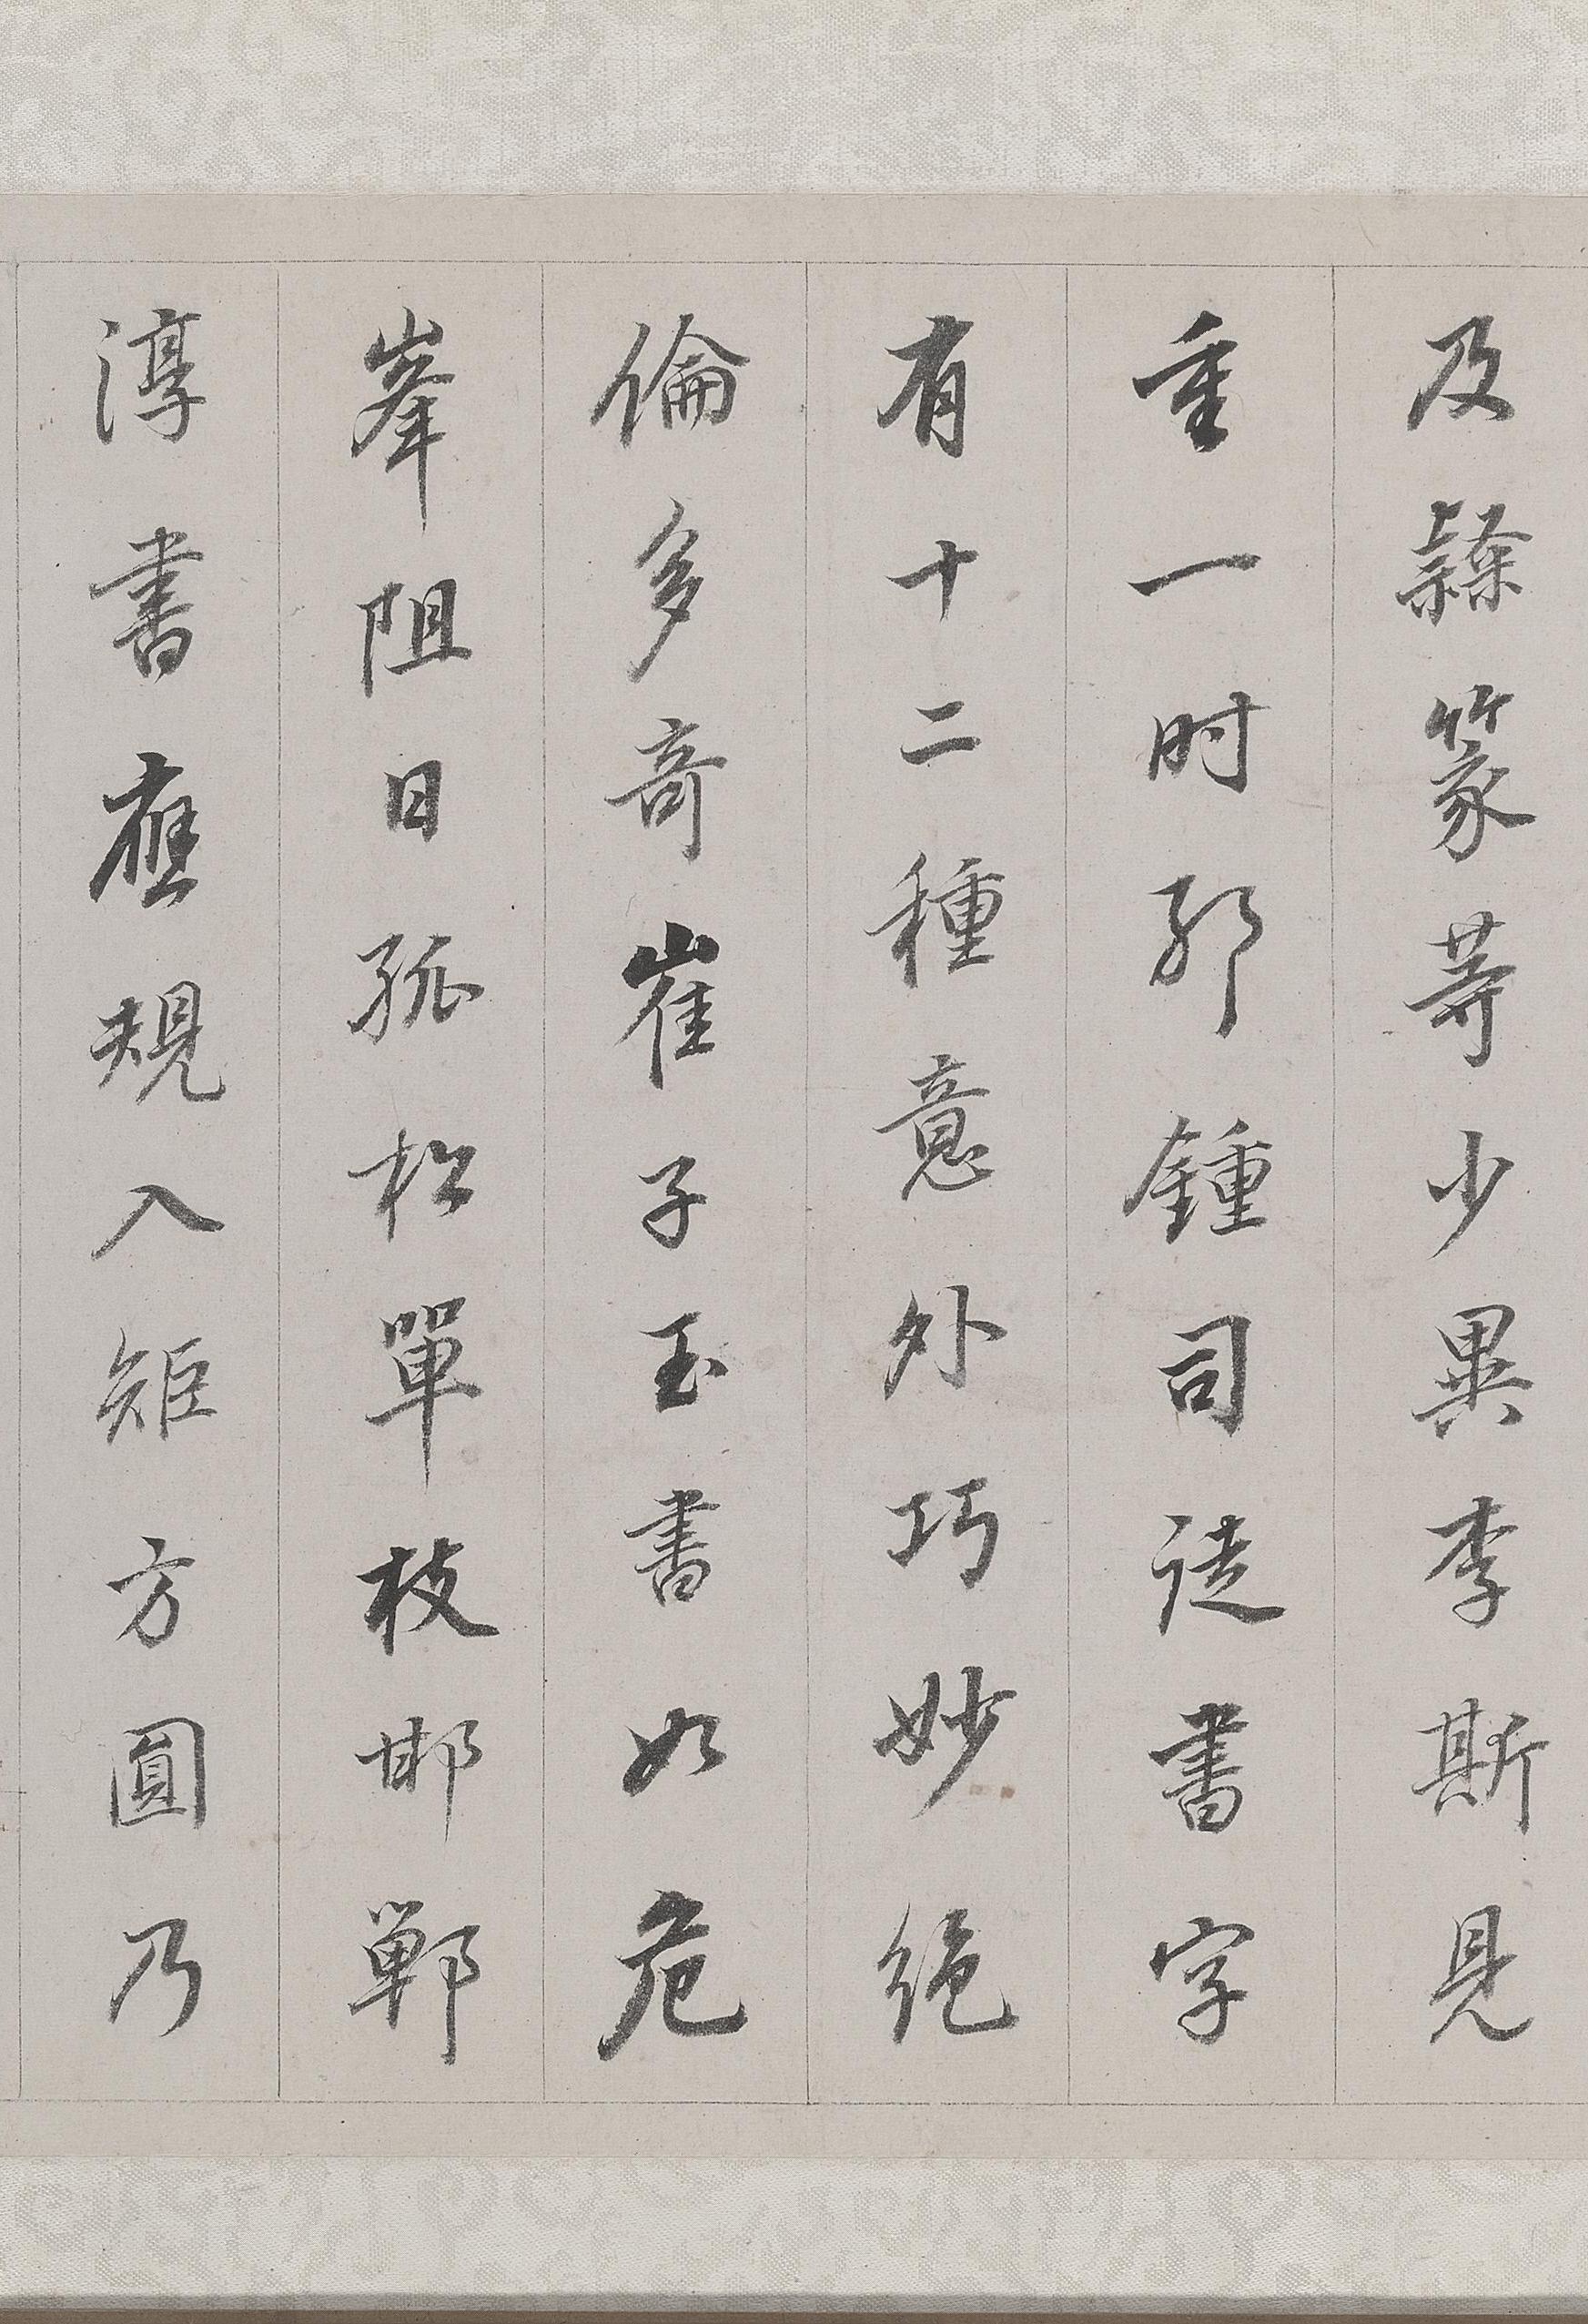 及隸篆等少異李斯見
重一時耶鍾司徒書字
有十二種意外巧妙絕
倫多奇崔子玉書如危
峯阻日孤松單枝邯鄲
淳書應規入矩方圓乃